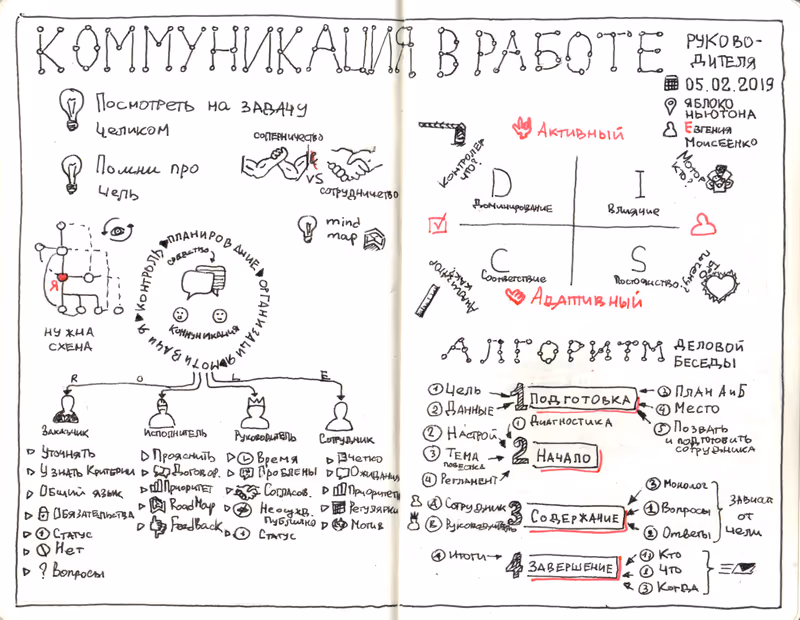 КОММУНИКАЦИЯ В РАБОТЕ
РУКОВО-
ДИТЕЛЯ
05.02.2019
ЯБЛОКО
НЬЮТОНА
Евгения
Моисеенко
Посмотреть на задачу
целиком
Помни про
цель
соперничество
VS
сотрудничество
mind
map
Я
НУЖНА
СХЕМА
КОНТРОЛЬ ПЛАНИРОВАНИЕ ОРГАНИЗАЦИЯ МОТИВАЦИЯ
средство
коммуникация
R O L E
Заказчик
Уточнять
Узнать Критерии
Общий язык
Обязательства
1 Статус
Нет
? Вопросы
Исполнитель
Прояснить
Договор.
Приоритет
RoadMap
Feedback
Руководитель
Время
Проблемы
Согласов.
Неосужд.
Публично
1 Статус
Сотрудник
Четко
Ожидания
Приоритеты
Регулярки
Мотив
Активный
Контролер
что?
Мотор
кто?
D
Доминирование
I
Влияние
C
Соответствие
S
Постоянство
Как?
почему?
Адаптивный
АЛГОРИТМ ДЕЛОВОЙ
БЕСЕДЫ
1 Цель
2 Данные
1 ПОДГОТОВКА
3 План А и Б
4 Место
5 Позвать
и подготовить
сотрудника
1 Диагностика
2 Настрой
3 Тема
повестка
4 Регламент
2 НАЧАЛО
Сотрудник
Руководитель
3 СОДЕРЖАНИЕ
3 Монолог
1 Вопросы
2 Ответы
ЗАВИСИТ
ОТ
ЦЕЛИ
Итоги
4 ЗАВЕРШЕНИЕ
1 Кто
2 Что
3 Когда